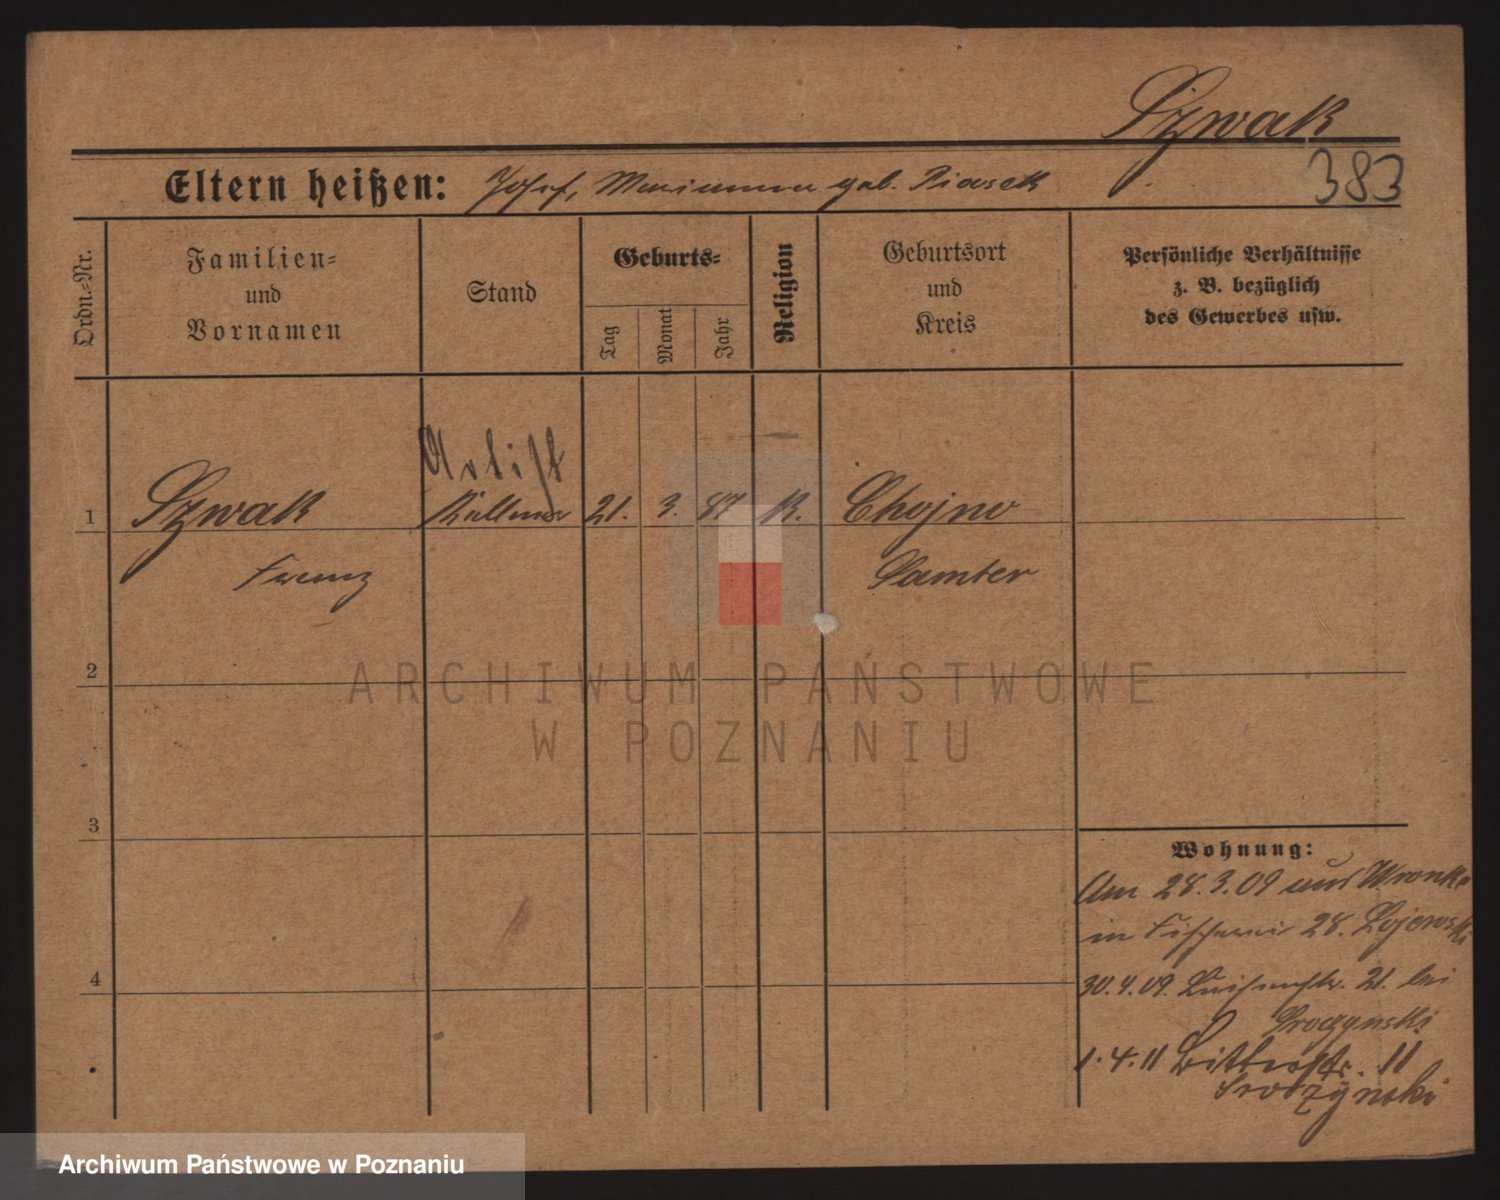 Szwak
383
Eltern heißen: Josef, Marianna geb. Piasek
Ordn.-Nr.
Familien-
und
Vornamen
Stand
Geburts-
Tag
Monat
Jahr
Religion
Geburtsort
und
Kreis
Persönliche Verhältnisse
z. B. bezüglich
des Gewerbes usw.
1 Szwak Kellner 21. 3. 87 K. Chojno
Franz Samter
2
3
4
Wohnung:
Am 28.3.09 aus Wronke
in Fischerei 28. Lojewski
30.4.09. Luisenstr. 21. bei
Sroczynski
1.4.11 Ritterstr. 11
Sroczynski
ARCHIWUM PAŃSTWOWE
W POZNANIU
Archiwum Państwowe w Poznaniu